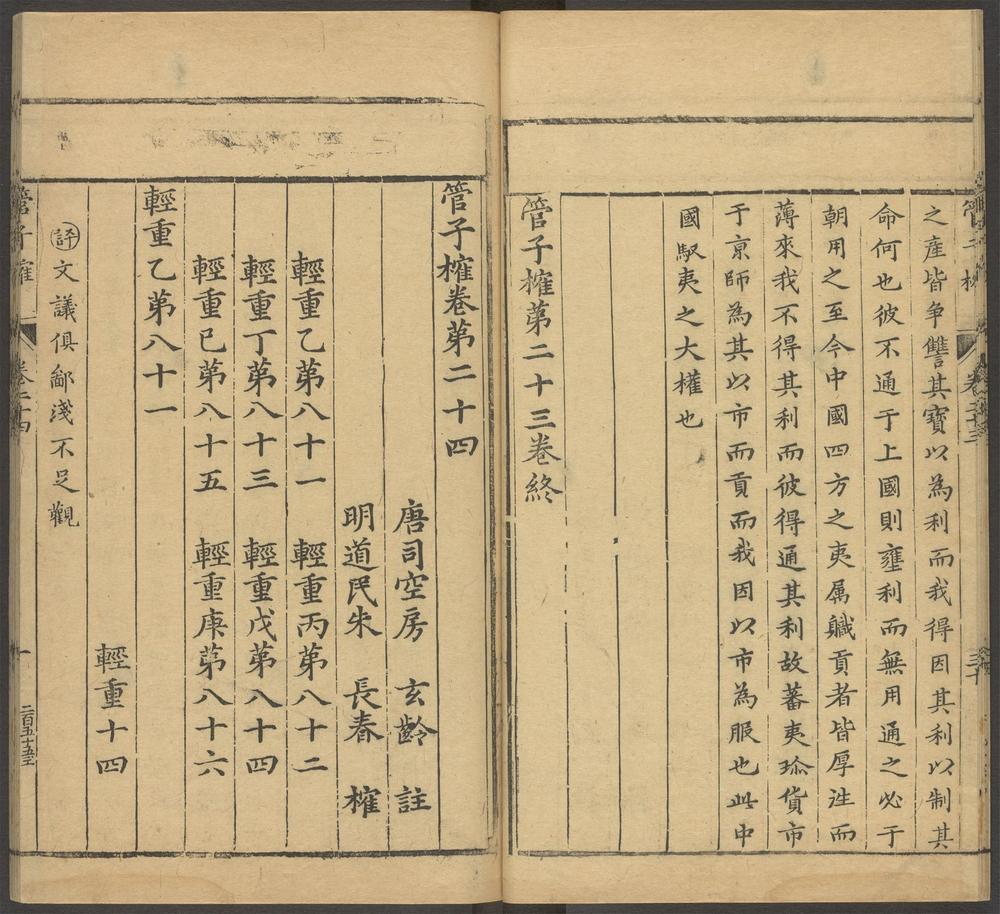 之產皆爭讐其寶以為利而我得因其利以制其
命何也彼不通于上國則壅利而無用通之必于
朝用之至今中國四方之夷屬職貢者皆厚往而
薄來我不得其利而彼得通其利故蕃夷珎貨市
于京師為其以市而貢而我因以市為服也此中
國馭夷之大權也
管子榷第二十三卷終
管子榷卷第二十四
唐司空房 玄齡 註
明道民朱 長春 榷
輕重乙第八十一 輕重丙第八十二
輕重丁第八十三 輕重戊第八十四
輕重己第八十五 輕重庚第八十六
輕重乙第八十一
輕重十四
評文議俱鄙淺不足觀
管子榷 卷二十四 一